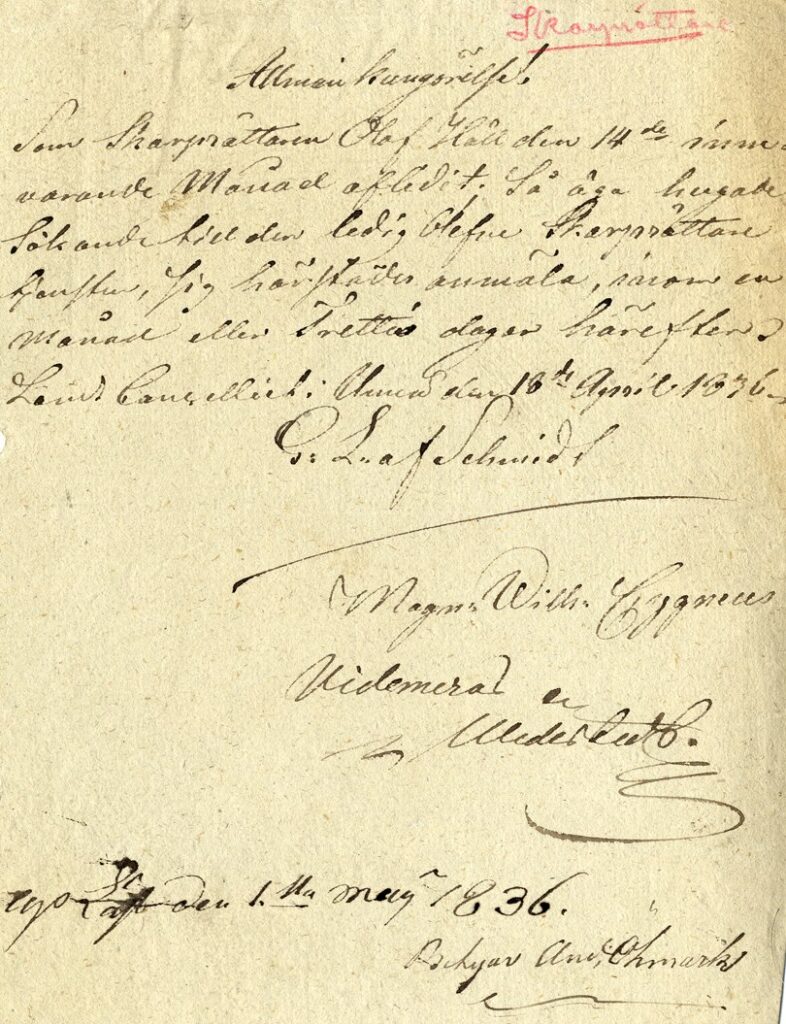 Skarprättare
Allmän kungörelse!
Som Skarprättaren Olof Häll den 14de inne
varande Månad aflidit; Så äga hugade
Sökande till den ledig blefne Skarprättare
tjensten, sig härstädes anmäla, inom en
månad eller Trettio dagar härefter.
Lands Cancelliet i Umeå den 18de April 1836.
G: L: af Schmidt
Magn: Wilh: Cygneus
Videmeras
den 1sta maÿ 1836.
And: Ohmark